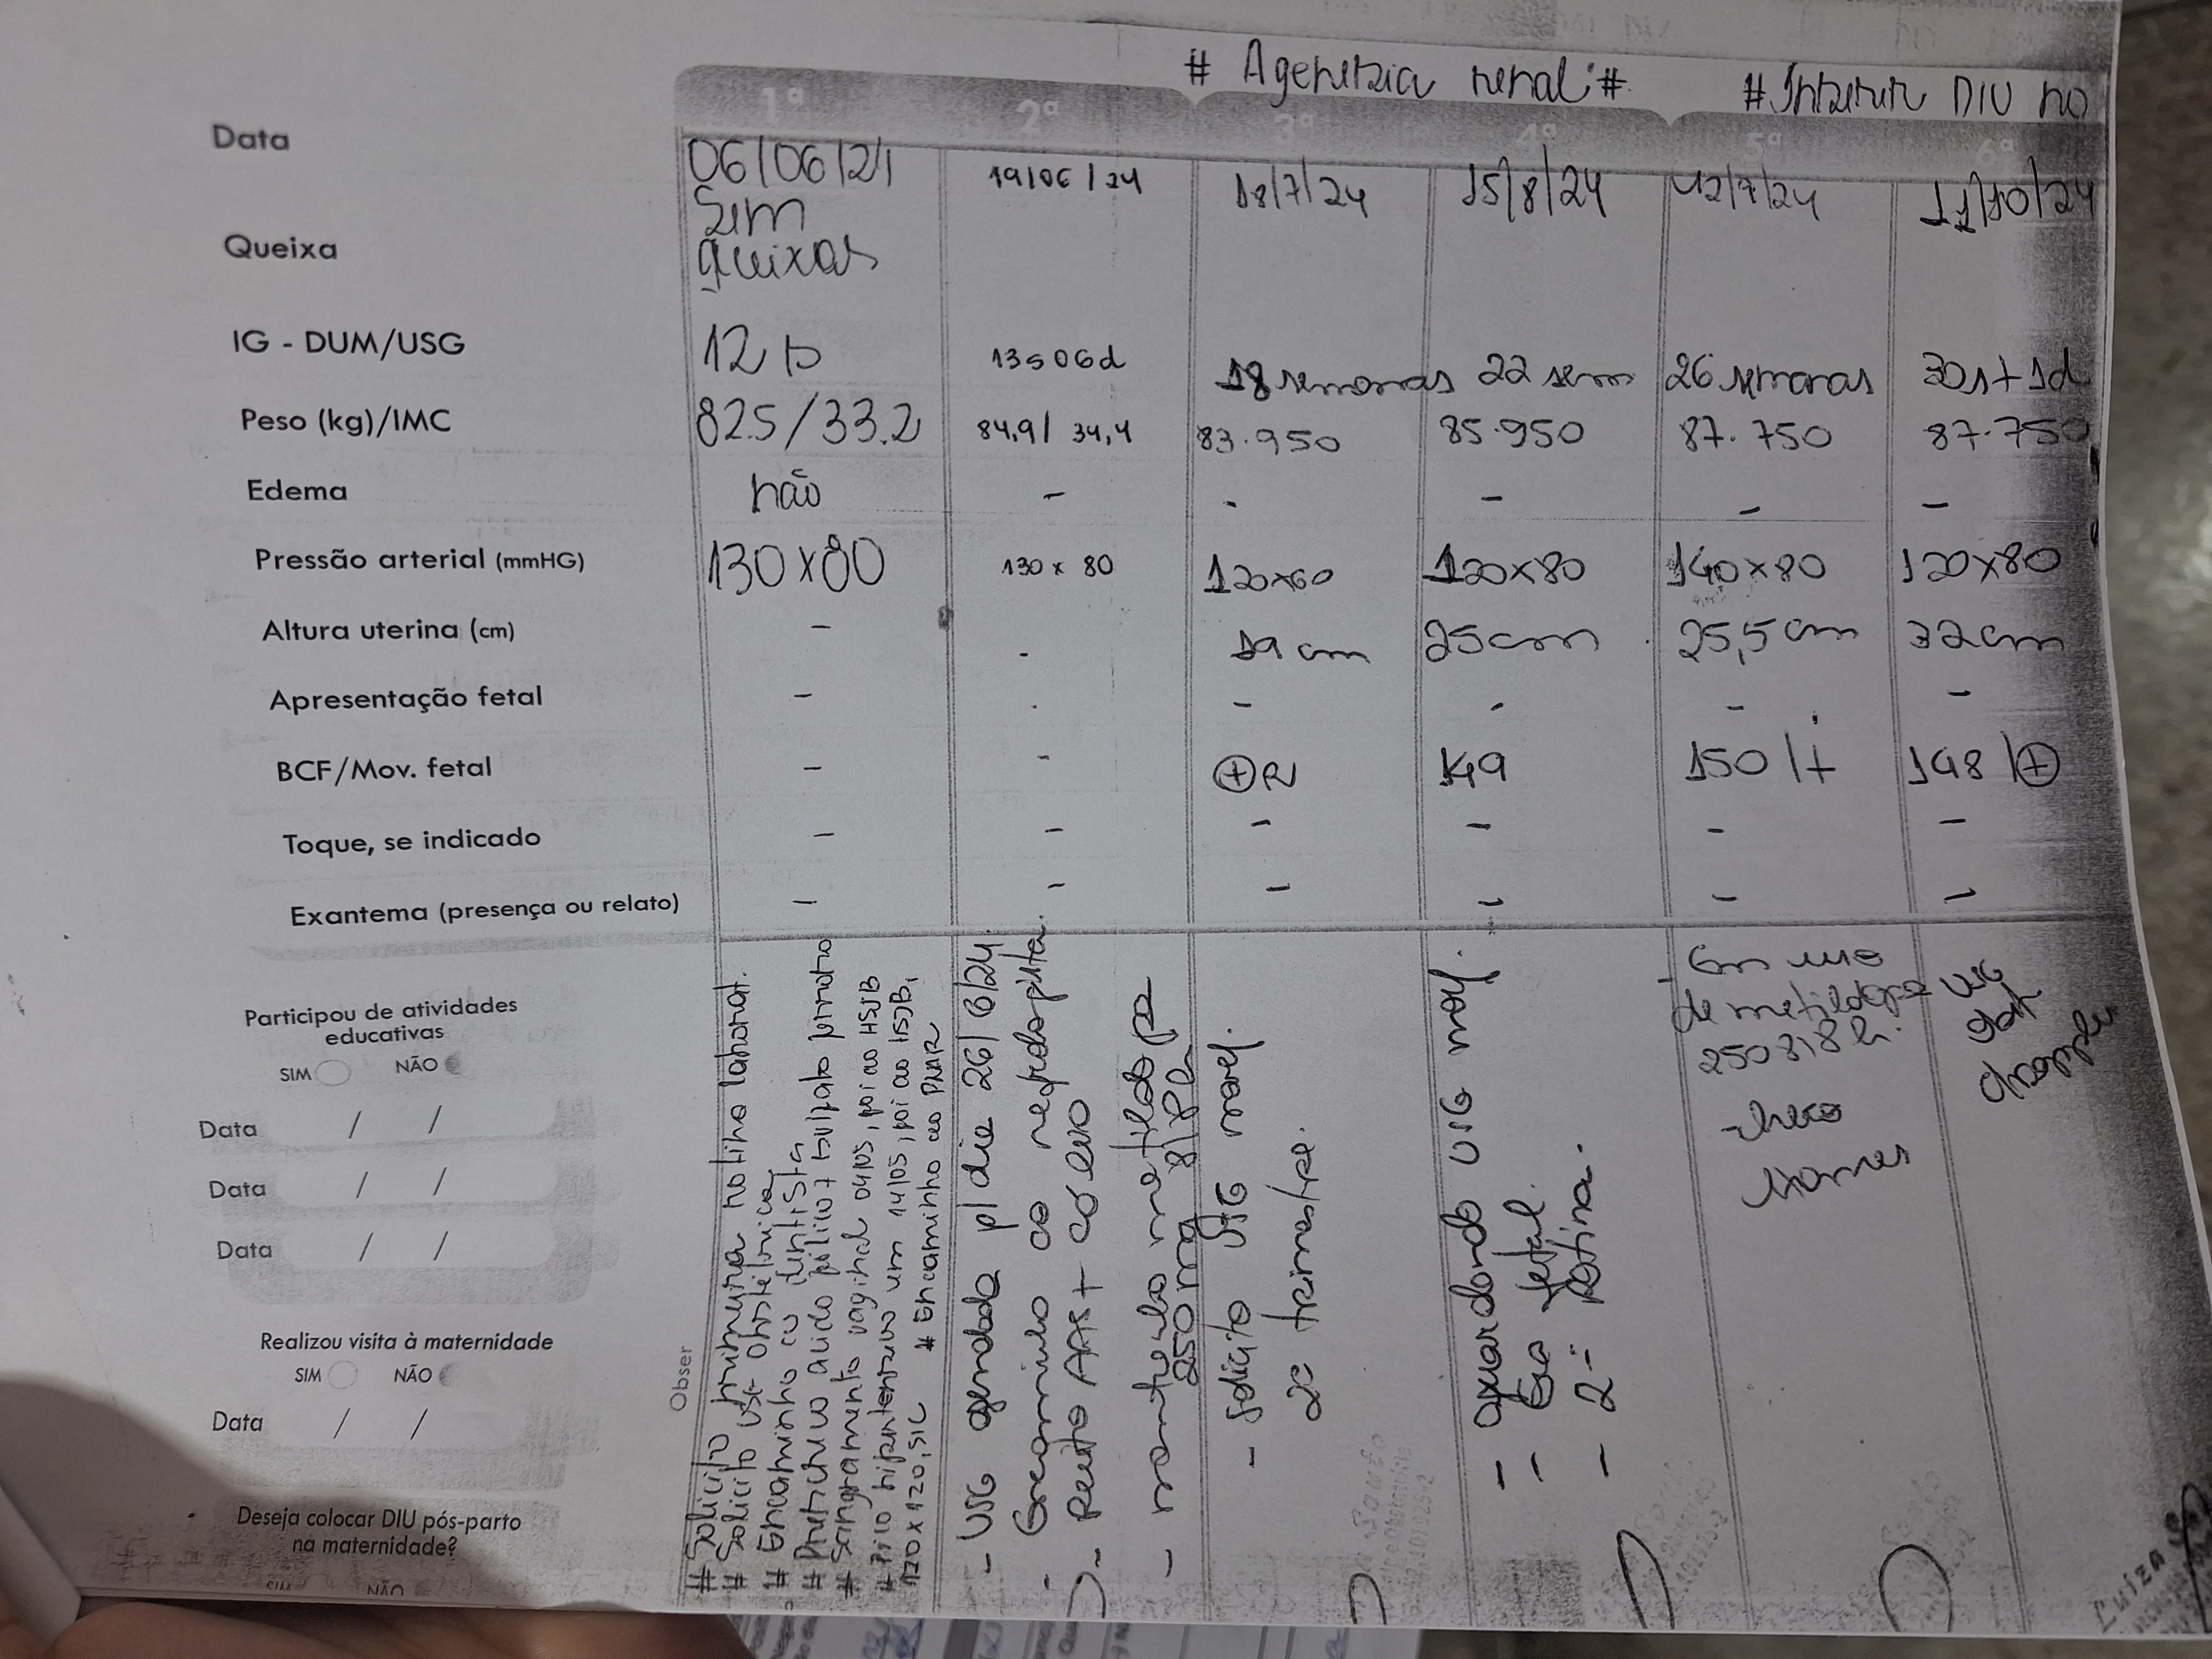 # Agenezia renal #
# Inserir DIU no
1ª 2ª 3ª 4ª 5ª 6ª
Data 06/06/24 19/06/24 18/7/24 15/8/24 12/7/24 11/10/24
Queixa Sem queixas
IG - DUM/USG 12 s 13s06d 18 semanas 22 sem 26 semanas 30s+1d
Peso (kg)/IMC 82.5/33.2 84,9/34,4 83.950 85.950 87.750 87.750
Edema não - - - - -
Pressão arterial (mmHG) 130x80 130x80 120x60 120x80 140x80 120x80
Altura uterina (cm) - - 19cm 25cm 25,5cm 32cm
Apresentação fetal - - - - - -
BCF/Mov. fetal - - ⊕ 149 150/+ 148/⊕
Toque, se indicado - - - - - -
Exantema (presença ou relato) - - - - - -
Participou de atividades
educativas
SIM NÃO
Data / /
Data / /
Data / /
Realizou visita à maternidade
SIM NÃO
Data / /
Deseja colocar DIU pós-parto
na maternidade?
SIM NÃO
Obser
# Solicito primeira rotina laborat.
# Solicito USG obstétrica
# Encaminho ao dentista
# Prescrevo ácido fólico + sulfato ferroso
# Sangramento vaginal 04/05, foi ao HSJB
# Pico hipertensivo em 14/05, foi ao HSJB,
170x120, SIC # Encaminho ao PNAR
- USG agendada p/ dia 26/6/24.
- Encaminho ao nefrologista.
- Receito AAS + cálcio
- mantenho metildopa
250mg 8/8h
- Solicito USG morf.
2º trimestre.
- aguardando USG morf.
- Eco fetal.
- 2ª rotina.
Em uso
de metildopa
250 8/8h.
- checo
exames
USG
obst
doppler
Luiza